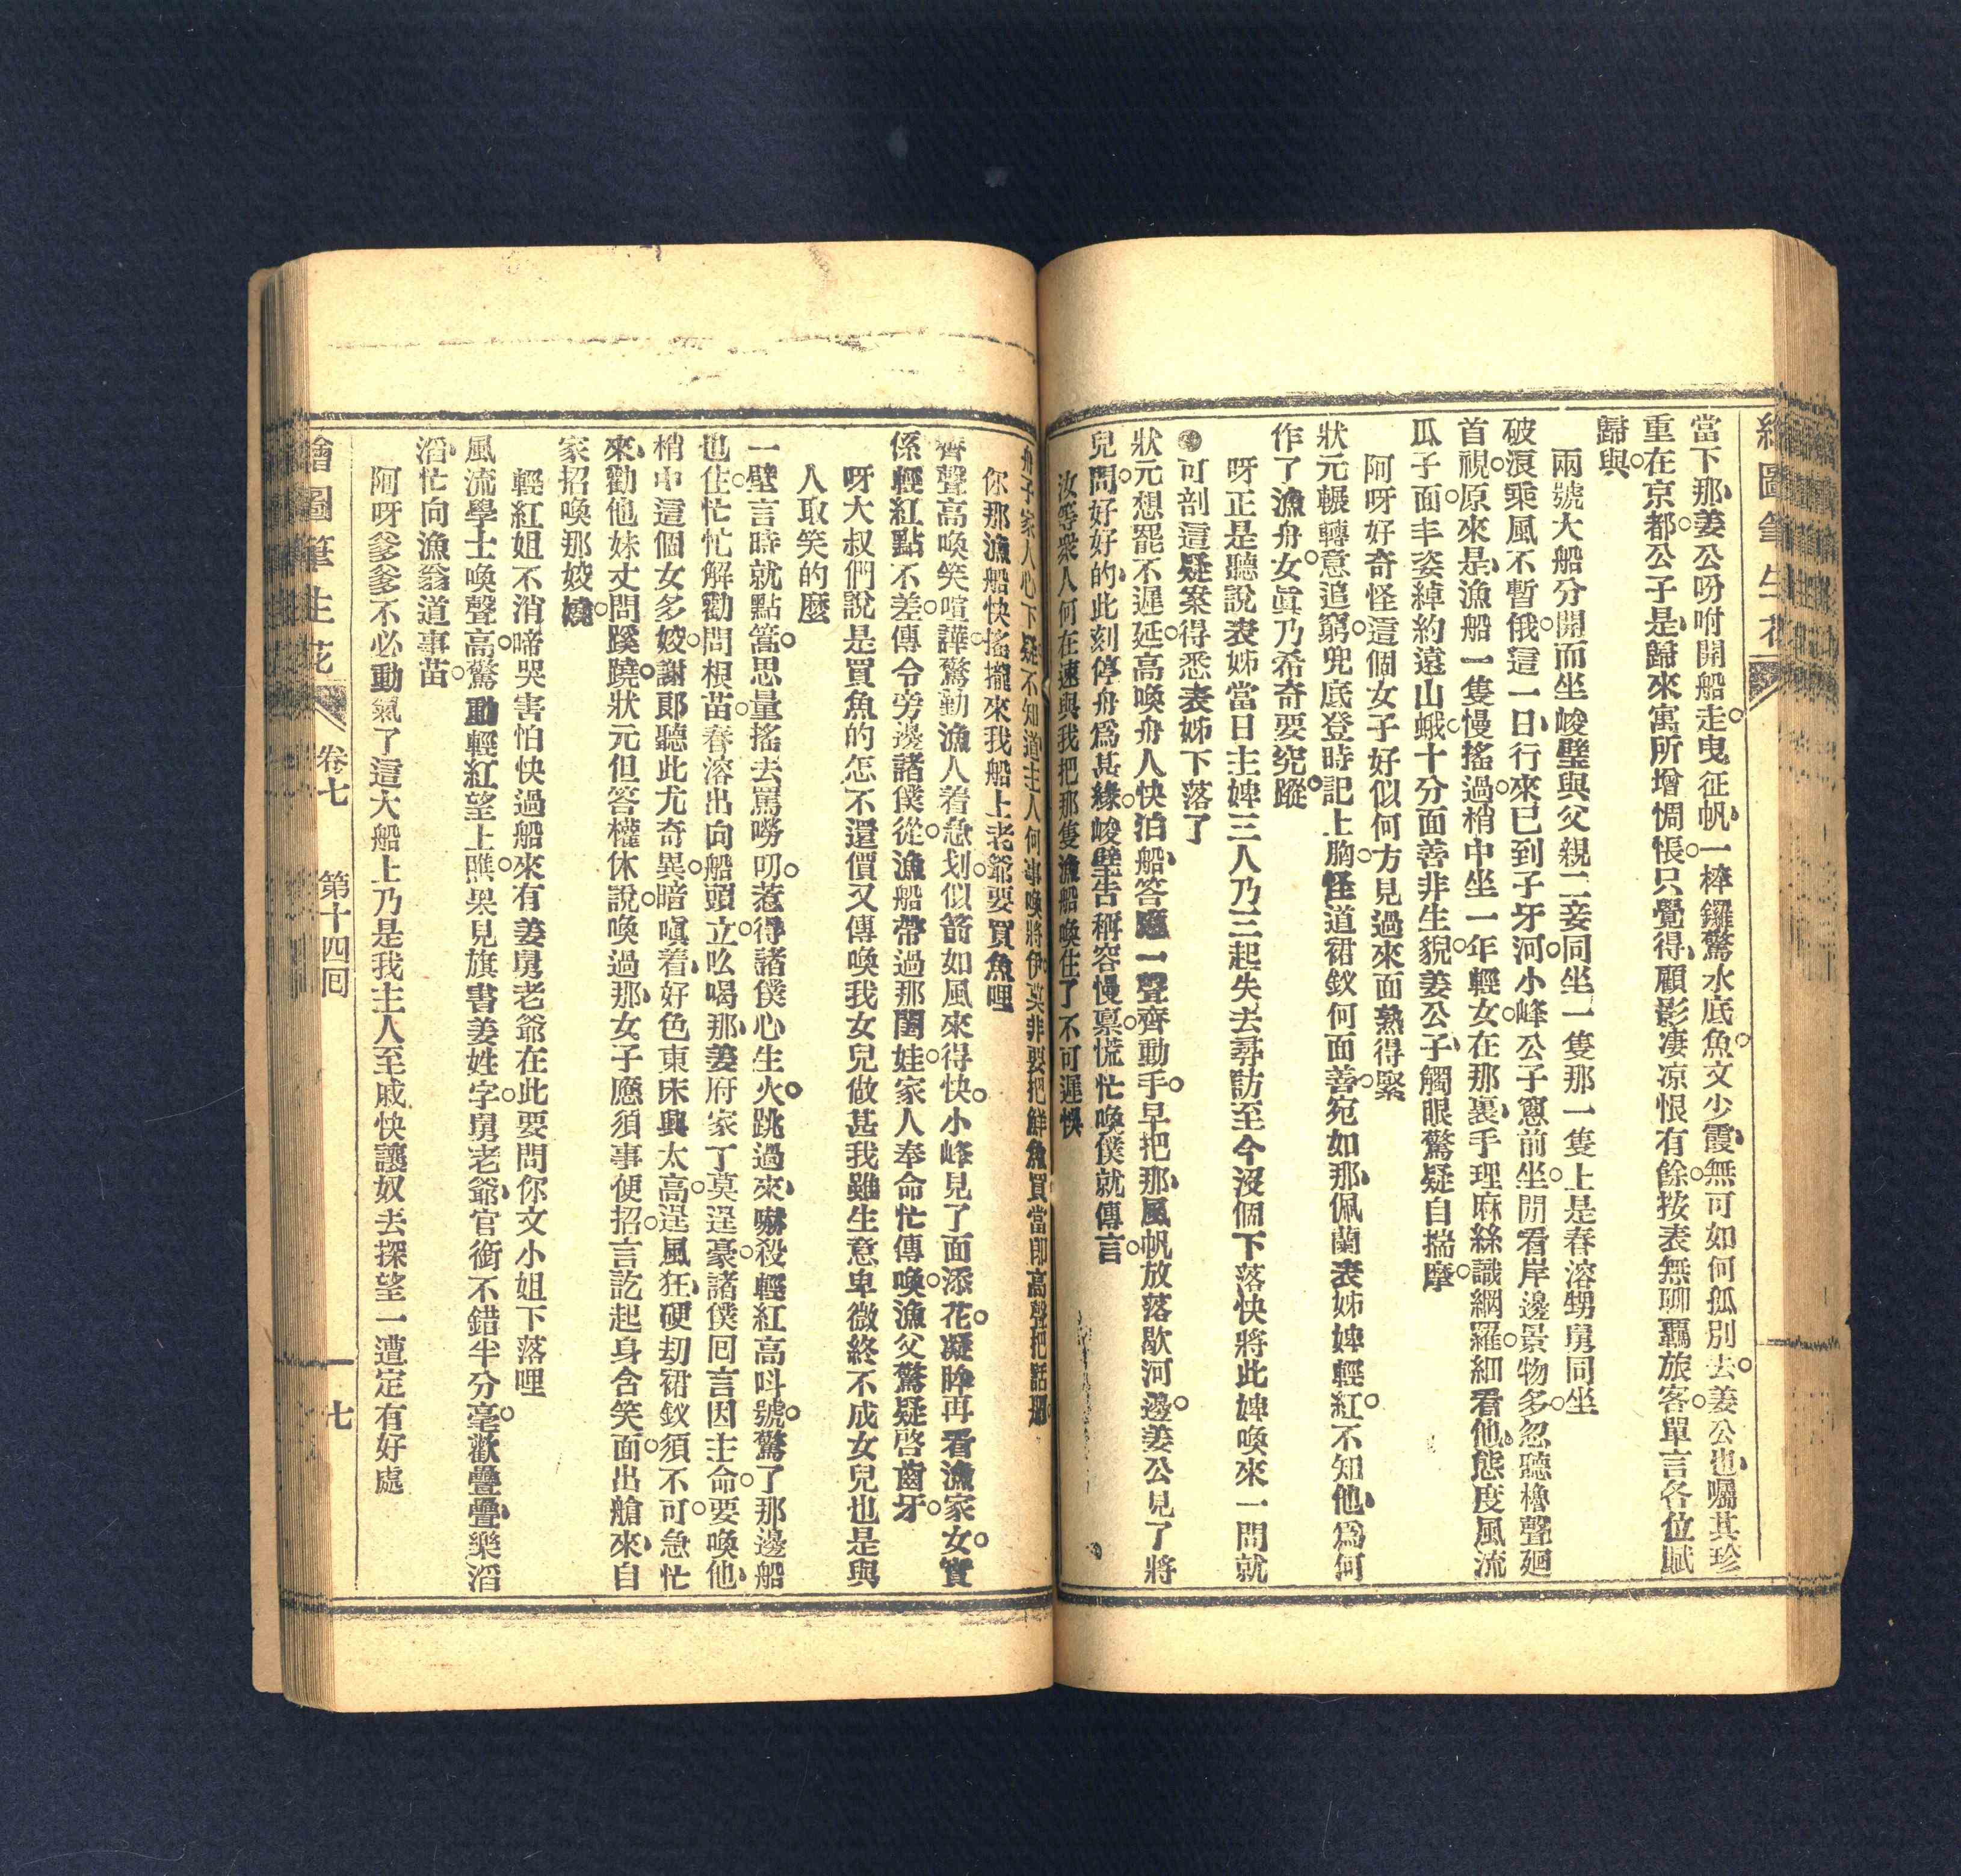 繪圖筆生花
當下那姜公吩咐開船走曳征帆一棒鑼驚水底魚文少霞無可如何孤別去姜公也囑其珍
重在京都公子是歸來寓所增惆悵只覺得顧影凄凉恨有餘按表無聊羈旅客單言各位賦
歸與
兩號大船分開而坐峻璧與父親二妾同坐一隻那一隻上是春溶甥舅同坐
破浪乘風不暫俄這一日行來已到子牙河小峰公子窻前坐閒看岸邊景物多忽聽櫓聲廻
首視原來是漁船一隻慢搖過梢中坐一年輕女在那裏手理麻絲識網羅細看他態度風流
瓜子面丰姿綽約遠山蛾十分面善非生貌姜公子觸眼驚疑自揣摩
阿呀好奇怪這個女子好似何方見過來面熟得緊
狀元輾轉意追窮兜底登時記上胸怪道裙釵何面善宛如那佩蘭表姊婢輕紅不知他爲何
作了漁舟女眞乃希奇要究蹤
呀正是聽說表姊當日主婢三人乃三起失去尋訪至今沒個下落快將此婢喚來一問就
可剖這疑案得悉表姊下落了
狀元想罷不遲延高喚舟人快泊船答應一聲齊動手早把那風帆放落歇河邊姜公見了將
兒問好好的此刻停舟爲甚緣峻璧告稱容慢禀慌忙喚僕就傳言
汝等衆人何在速與我把那隻漁船喚住了不可遲悞
舟子家人心下疑不知道主人何事喚將伊莫非要把鮮魚買當卽高聲把話
你那漁船快搖攏來我船上老爺要買魚哩
齊聲高喚笑喧譁驚動漁人着急划似箭如風來得快小峰見了面添花凝眸再看漁家女實
係輕紅點不差傳令旁邊諸僕從漁船帶過那閨娃家人奉命忙傳喚漁父驚疑啓齒牙
呀大叔們說是買魚的怎不還價又傳喚我女兒做甚我雖生意卑微終不成女兒也是與
人取笑的麼
一壁言時就點篙思量搖去罵嘮叨惹得諸僕心生火跳過來嚇殺輕紅高叫號驚了那邊船
也住忙忙解勸問根苗春溶出向船頭立吆喝那姜府家丁莫逞豪諸僕回言因主命要喚他
梢中這個女多姣謝郎聽此尤奇異暗嗔着好色東床興太高逞風狂硬刧裙釵須不可急忙
來勸他妹丈問蹊蹺狀元但答權休說喚過那女子應須事便招言訖起身含笑面出艙來自
家招喚那姣嬈
輕紅姐不消啼哭害怕快過船來有姜舅老爺在此要問你文小姐下落哩
風流學士喚聲高驚動輕紅望上瞧果見旗書姜姓字舅老爺官銜不錯半分毫歡疊疊樂滔
滔忙向漁翁道事苗
阿呀爹爹不必動氣了這大船上乃是我主人至戚快讓奴去探望一遭定有好處
繪圖筆生花 卷七 第十四回 一七